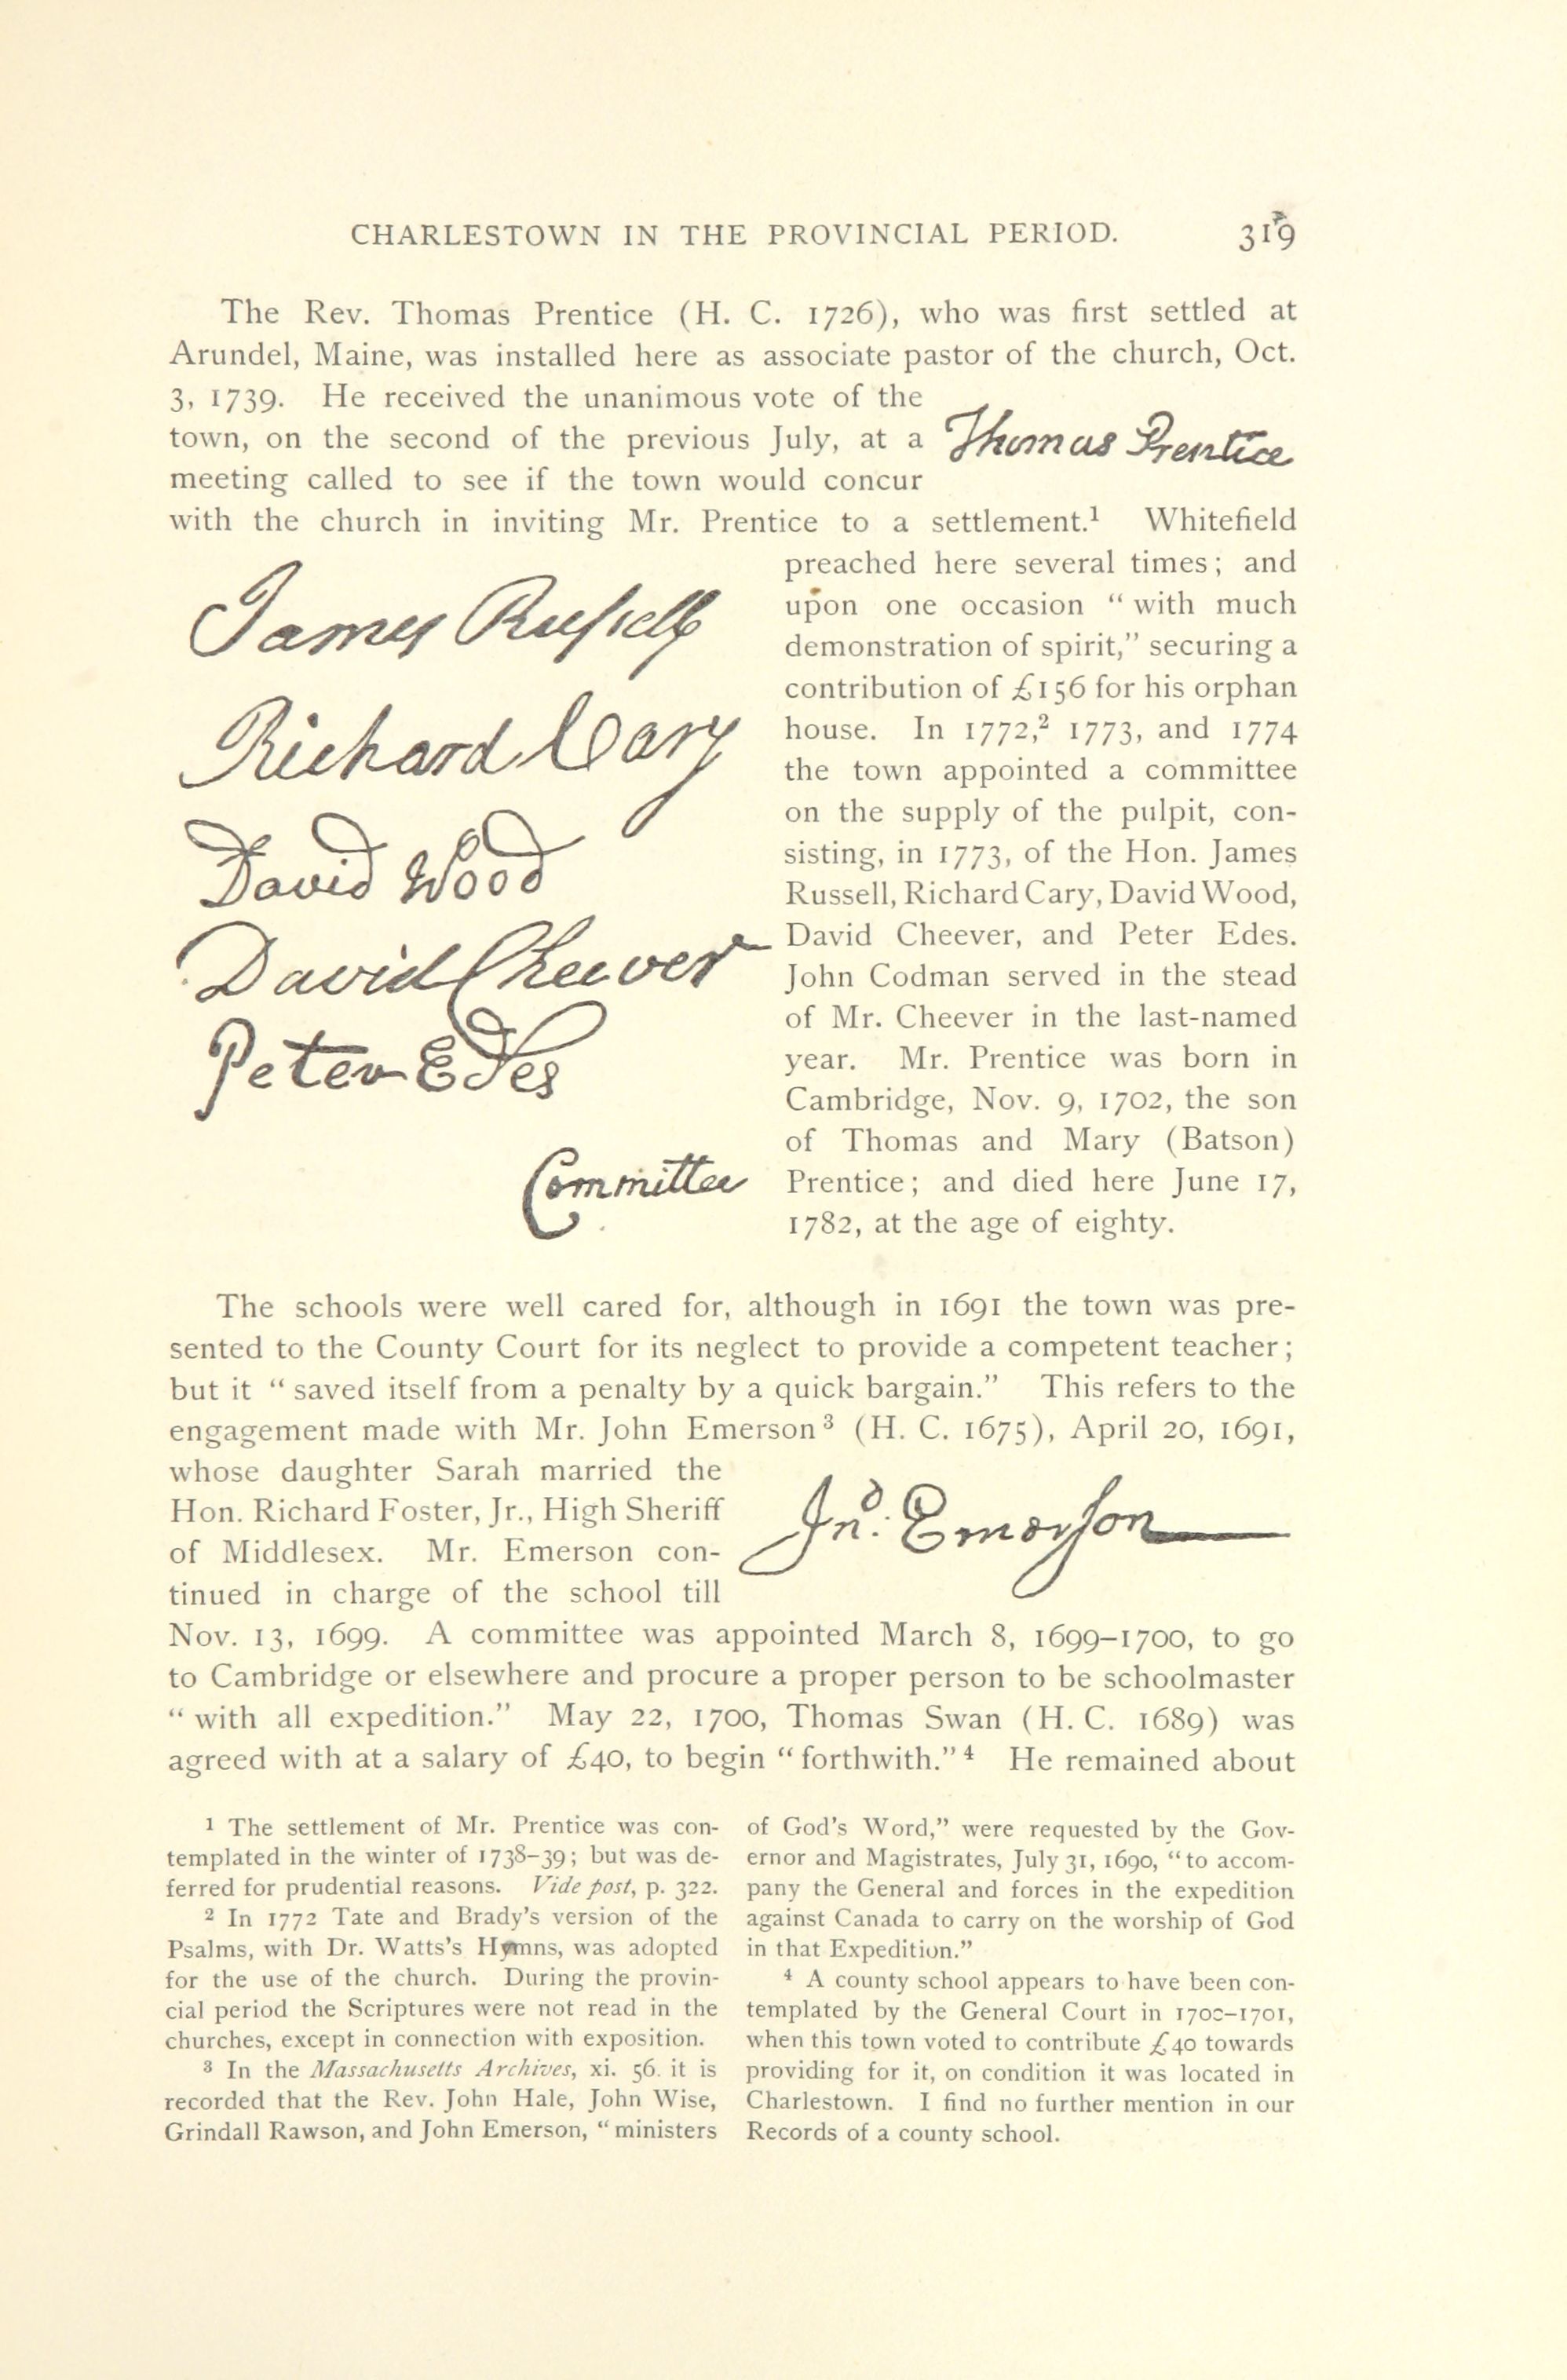 CHARLESTOWN IN THE PROVINCIAL PERIOD. 319
The Rev. Thomas Prentice (H. C. 1726), who was first settled at
Arundel, Maine, was installed here as associate pastor of the church, Oct.
3, 1739. He received the unanimous vote of the
town, on the second of the previous July, at a
meeting called to see if the town would concur
Thomas Prentice
with the church in inviting Mr. Prentice to a settlement.¹ Whitefield
James Russell
Richard Cary
David Wood
David Cheever
Peter Edes
Committee
preached here several times; and
upon one occasion “with much
demonstration of spirit,” securing a
contribution of £156 for his orphan
house. In 1772,² 1773, and 1774
the town appointed a committee
on the supply of the pulpit, con-
sisting, in 1773, of the Hon. James
Russell, Richard Cary, David Wood,
David Cheever, and Peter Edes.
John Codman served in the stead
of Mr. Cheever in the last-named
year. Mr. Prentice was born in
Cambridge, Nov. 9, 1702, the son
of Thomas and Mary (Batson)
Prentice; and died here June 17,
1782, at the age of eighty.
The schools were well cared for, although in 1691 the town was pre-
sented to the County Court for its neglect to provide a competent teacher;
but it “saved itself from a penalty by a quick bargain.” This refers to the
engagement made with Mr. John Emerson³ (H. C. 1675), April 20, 1691,
whose daughter Sarah married the
Hon. Richard Foster, Jr., High Sheriff
of Middlesex. Mr. Emerson con-
tinued in charge of the school till
Jnº: Emerson
Nov. 13, 1699. A committee was appointed March 8, 1699–1700, to go
to Cambridge or elsewhere and procure a proper person to be schoolmaster
“with all expedition.” May 22, 1700, Thomas Swan (H. C. 1689) was
agreed with at a salary of £40, to begin “forthwith.”⁴ He remained about
¹ The settlement of Mr. Prentice was con-
templated in the winter of 1738–39; but was de-
ferred for prudential reasons. Vide post, p. 322.
² In 1772 Tate and Brady’s version of the
Psalms, with Dr. Watts’s Hymns, was adopted
for the use of the church. During the provin-
cial period the Scriptures were not read in the
churches, except in connection with exposition.
³ In the Massachusetts Archives, xi. 56. it is
recorded that the Rev. John Hale, John Wise,
Grindall Rawson, and John Emerson, “ministers
of God’s Word,” were requested by the Gov-
ernor and Magistrates, July 31, 1690, “to accom-
pany the General and forces in the expedition
against Canada to carry on the worship of God
in that Expedition.”
⁴ A county school appears to have been con-
templated by the General Court in 1700–1701,
when this town voted to contribute £40 towards
providing for it, on condition it was located in
Charlestown. I find no further mention in our
Records of a county school.